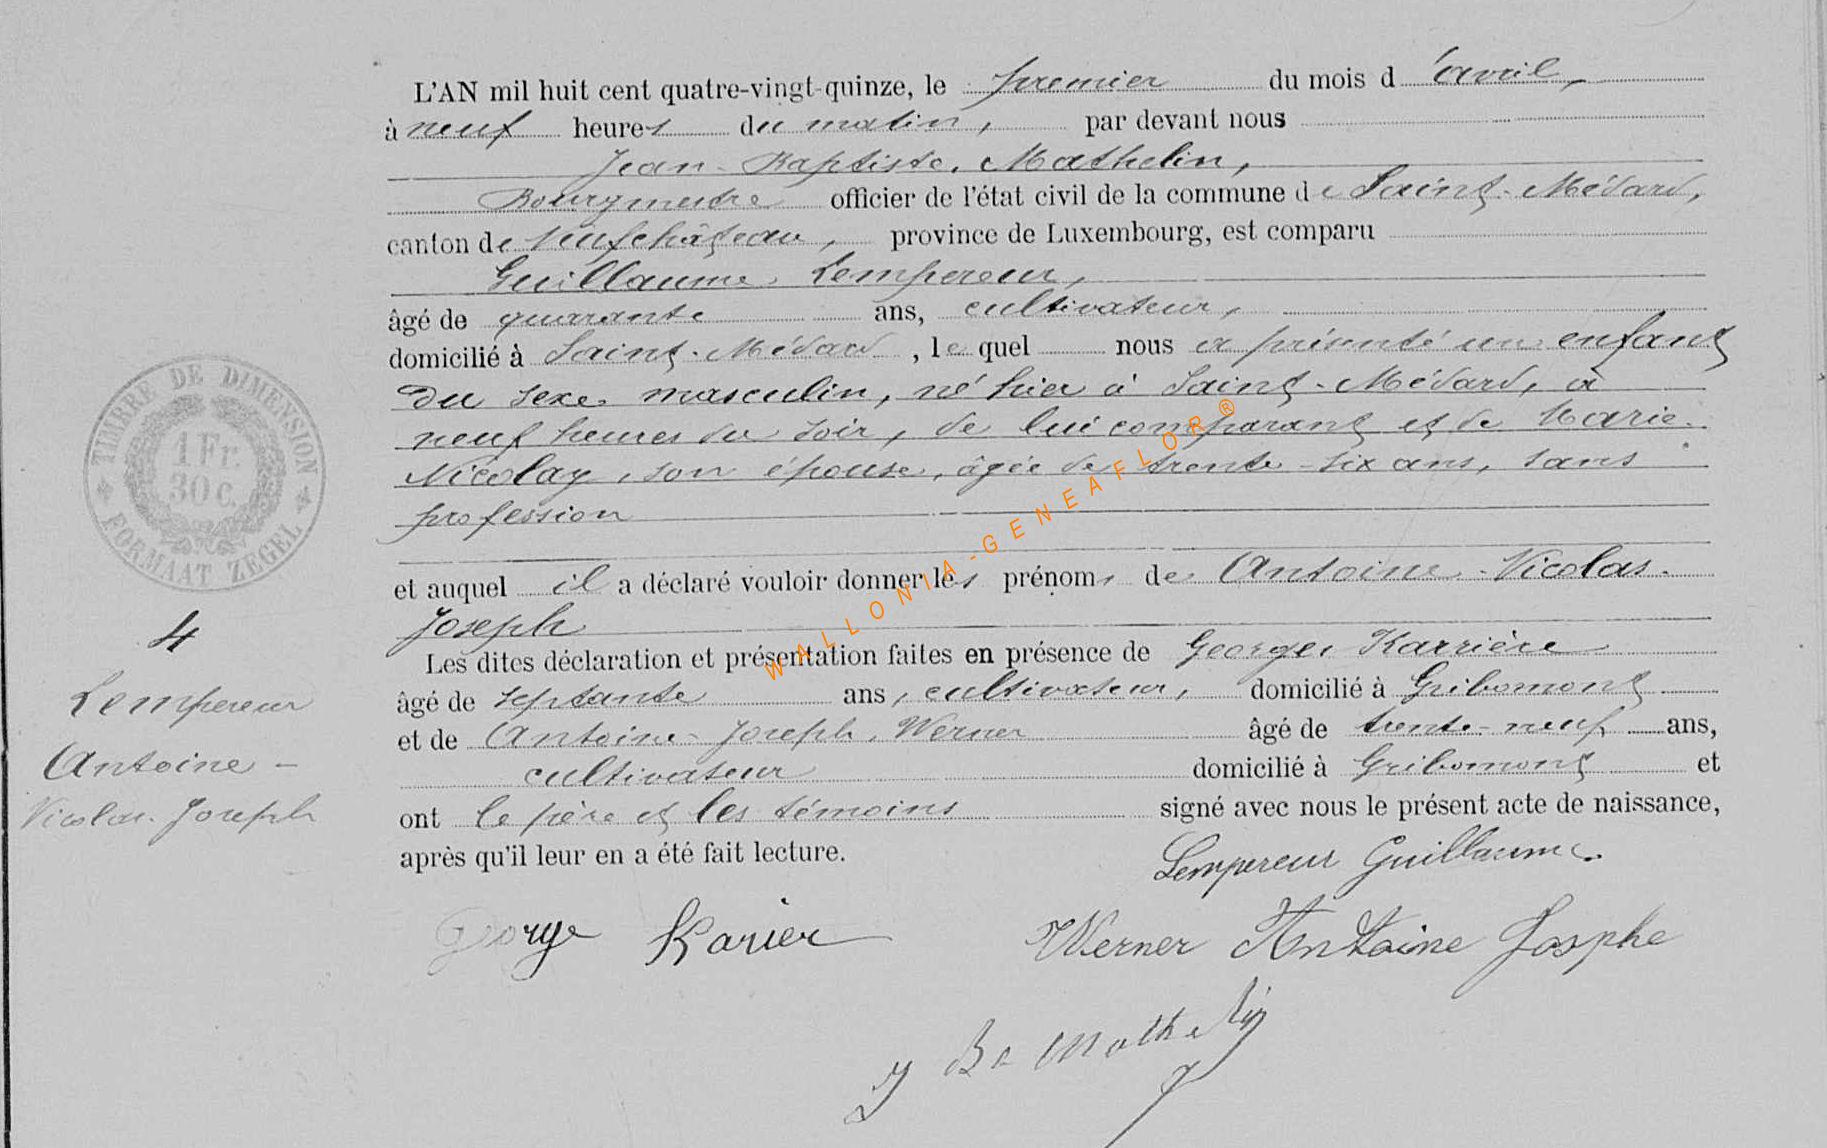 L'AN mil huit cent quatre-vingt-quinze, le premier du mois d'avril,
à neuf heures du matin, par devant nous
Jean-Baptiste Mathelin,
Bourgmestre officier de l'état civil de la commune de Saint-Médard,
canton de Neufchâteau, province de Luxembourg, est comparu
Guillaume Lempereur,
âgé de quarante ans, cultivateur,
domicilié à Saint-Médard, lequel nous a présenté un enfant
du sexe masculin, né hier à Saint-Médard, à
neuf heures du soir, de lui comparant et de Marie
Nicolay, son épouse, âgée de trente-six ans, sans
profession
et auquel il a déclaré vouloir donner les prénoms de Antoine-Nicolas-
Joseph
Les dites déclaration et présentation faites en présence de Georges Karrière
âgé de septante ans, cultivateur, domicilié à Gribomont
et de Antoine-Joseph Werner âgé de trente-neuf ans,
cultivateur domicilié à Gribomont et
ont le père et les témoins signé avec nous le présent acte de naissance,
après qu'il leur en a été fait lecture.
Lempereur Guillaume.
George Karier Werner Antoine Josphe
J Bte Mathelin
TIMBRE DE DIMENSION
1 Fr.
30 c.
FORMAAT ZEGEL
4
Lempereur
Antoine-
Nicolas-Joseph
WALLONIA-GENEAFLOR®